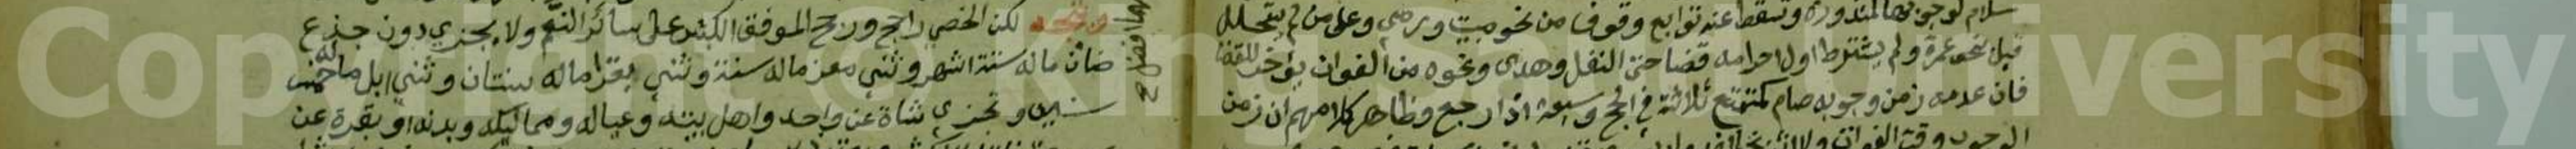 سلام لوجوبها المنذورة وتسقط عنه توابع وقوف من نحو مبيت ورمي وعلى من لم يتحلل
قبل نحو عمرة ولم يشترط اول احرامه قضا حتى النفل وهدي ونحوه من الفوات يؤخر للقضا
فان عدمه زمن وجوبه صام كمتمتع ثلاثة في الحج وسبعة اذا رجع وظاهر كلامهم ان زمن
الوجوب وقت الفوات
ويتجه لكن الخصي راجح ورجح الموفق الكبش على سائر النعم ولا يجزي دون جذع
ضان ماله ستة اشهر وثني معز ماله سنة وثني بقر ماله سنتان وثني ابل ماله خمس
سنين وتجزي شاة عن واحد واهل بيته وعياله ومماليكه وبدنة او بقرة عن
Copyright © King University